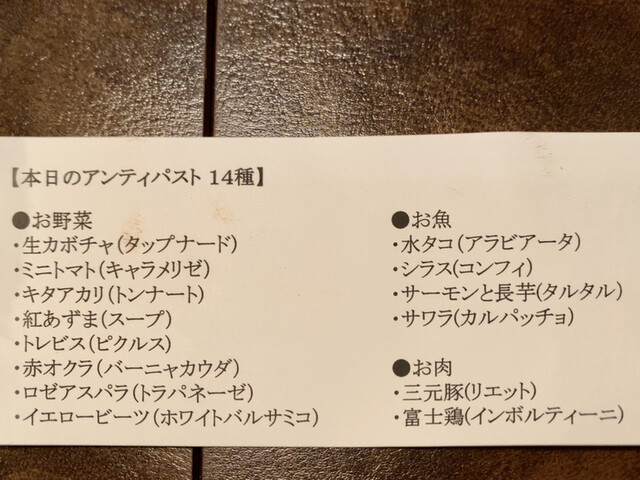 【本日のアンティパスト 14種】
●お野菜
・生カボチャ(タップナード)
・ミニトマト(キャラメリゼ)
・キタアカリ(トンナート)
・紅あずま(スープ)
・トレビス(ピクルス)
・赤オクラ(バーニャカウダ)
・ロゼアスパラ(トラパネーゼ)
・イエロービーツ(ホワイトバルサミコ)
●お魚
・水タコ(アラビアータ)
・シラス(コンフィ)
・サーモンと長芋(タルタル)
・サワラ(カルパッチョ)
●お肉
・三元豚(リエット)
・富士鶏(インボルティーニ)